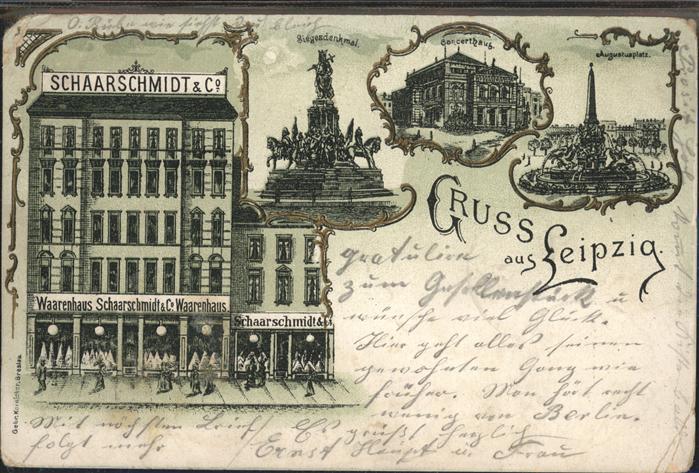 O. Ruhe wie siehst Du bleich
Siegesdenkmal.
Concerthaus.
Augustusplatz.
SCHAARSCHMIDT & Co.
GRUSS
aus Leipzig.
Waarenhaus Schaarschmidt & Co. Waarenhaus
Schaarschmidt & Co.
Gebr. Breslau.
gratulire
zum Gesellenstück u
wünsche viel Glück.
Hier geht alles seinen
gewohnten Gang wie
früher. Man hört recht
wenig von Berlin.
Mit nächsten Brief Es grüsst herzlich
folgt mehr Ernst Haupt u Frau